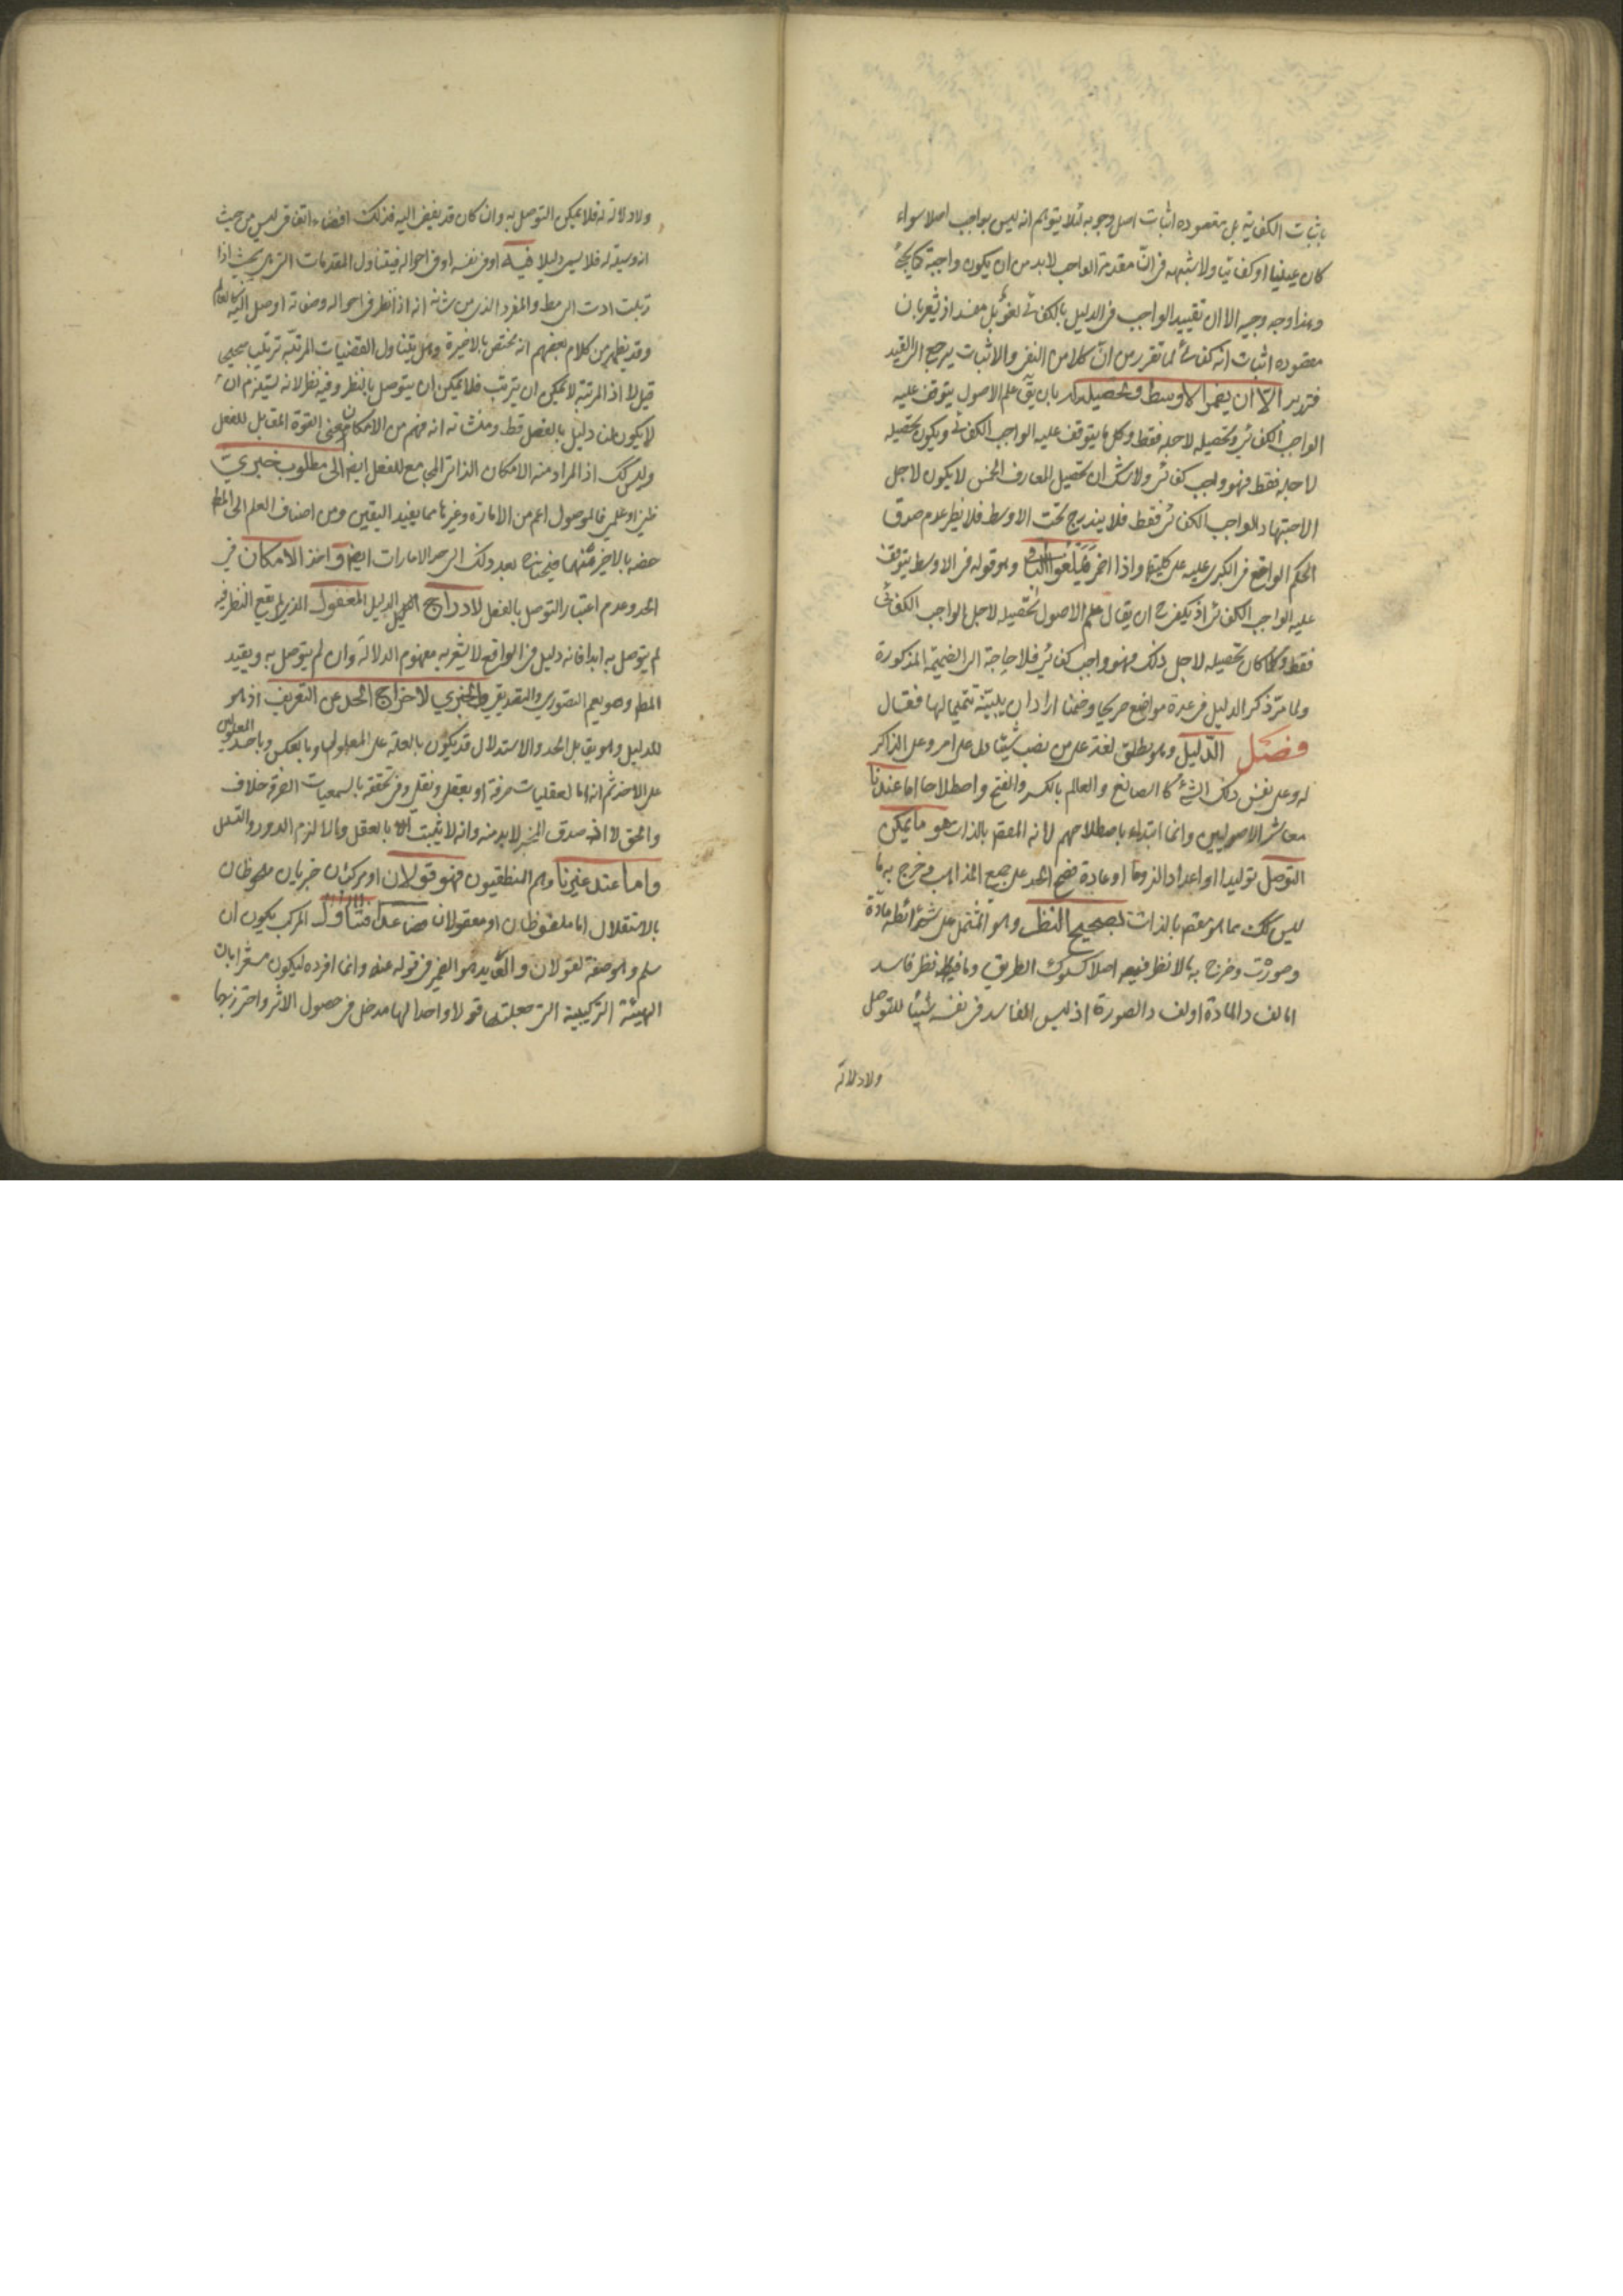 باثبات الكفائية بل مقصوده اثبات اصل وجوبه لئلا يتوهم انه ليس بواجب اصلا سواء
كان عينيا او كفائيا ولا شبهه فى انّ مقدمة الواجب لابد من ان يكون واجبة
وهذا وجه وجيه الا ان تقييد الواجب فى الدليل بالكفائى لغو بل مفسد اذ يشعر بان
مقصوده اثبات انه كفائى لما تقرر من انّ كلا من النفى والاثبات يرجع الى القيد
فتدبر الا ان يضمر الاوسط وتحصيله بان يق علم الاصول يتوقف عليه
الواجب الكفائى وتحصيله لاجله فقط وكل ما يتوقف عليه الواجب الكفائى ويكون تحصيله
لاجله فقط فهو واجب كفائى ولا شك ان تحصيل المعارف الخمس لا يكون لاجل
الاجتهاد الواجب الكفائى فقط فلا يندرج تحت الاوسط فلا يظهر عدم صدق
الحكم الواقع فى الكبرى عليه على كليتها واذا اضمر فيلغو وهو قوله فى الاوسط يتوقف
عليه الواجب الكفائى اذ يكفى ح ان يقال علم الاصول تحصيله لاجل الواجب الكفائى
فقط وكلما كان تحصيله لاجل ذلك فهو واجب كفائى فلا حاجة الى الضميمة المذكورة
ولما مرّ ذكر الدليل فى عدة مواضع صريحا وضمنا اراد ان يبيّنه تتميما لها فقال
فصل الدّليل وهو يطلق لغة على من نصب شيئا دل على امر وعلى الذاكر
له وعلى نفس ذلك الشئ كالصانع والعالم بالكسر والفتح واصطلاحا اما عندنا
معاشر الاصوليين وانما ابتداء باصطلاحهم لانه المقصم بالذات هو ما يمكن
التوصل توليدا او اعدادا لزوما او عادة فصح الحد على جميع المذاهب فخرج به ما
ليس كك مما هو مقصم بالذات بصحيح النظر وهو المشتمل على شرائطه مادة
وصورة وخرج به ما لا نظر فيه اصلا كسلوك الطريق وما فيه نظر فاسد
اما لفساد المادة او لفساد الصورة اذ ليس الفاسد فى نفسه شيئا للتوصل
ولا دلالة
ولا دلالة له فلا يمكن التوصل به وان كان قد يفضى اليه فذلك افضاء اتفاقى ليس من حيث
انه وسيلة له فلا يسمى دليلا فيه اى فى نفسه او فى احواله فيتناول المقدمات التى هى بحيث اذا
رتبت ادت الى مط والمفرد الذى من شانه انه اذا نظر فى احواله وصفاته اوصل اليه كالعالم
وقد يظهر من كلام بعضهم انه مختص بالاخيرة وهل يتناول القضيات المرتبه ترتيب صحيح
قيل لا اذ المرتبة لا يمكن ان يترتب فلا يمكن ان يتوصل بالنظر وفيه نظر لانه يستلزم ان
لا يكون لنا دليل بالفعل قط ومنشائه انه فهم من الامكان معنى القوة المقابل للفعل
وليس كك اذ المراد منه الامكان الذاتى المجامع للفعل ايضا الى مطلوب خبري
ظنى او علمى فالموصول اعم من الامارة وغيرها مما يفيد اليقين ومن اصناف العلم الى المط
خصه بالاخير منهما فيحتاج بعد ذلك الى حد الامارات ايضا واخذ الامكان فى
الحد وعدم اعتبار التوصل بالفعل لادراج الدليل المغفول الذى لم يقع النظر فيه
لم يتوصل به ابدا فانه دليل فى الواقع لا يشعر به مفهوم الدلالة وان لم يتوصل به ويقيد
المط وهو يعم التصوري والتصديقي والخبري لاخراج الحد عن التعريف اذ هو
للدليل وهو يقابل الحد والاستدلال قد يكون بالعلة على المعلول وبالعكس وباحد المعلولين
على الاخر ثم انه اما لعقليات صرفة او بعقلى ونقلى وفى تحققه بالسمعيات الصرفة خلاف
والحق لا اذ صدق المخبر لابد منه وانه لا يثبت الا بالعقل والا لزم الدور والتسلسل
واما عند غيرنا وهم المنطقيون فهو قولان او مركبان خبريان ملحوظان
بالاستقلال اما ملفوظان او معقولان فصاعدا فتناول المركب يكون ان
سلم وهو صفة لقولان والعايد هو الضمير فى قوله عنه وانما افرده ليكون مشعرا بان
الهيئة التركيبية التى جعلتها قولا واحدا لها مدخل فى حصول الاثر واحترز بها